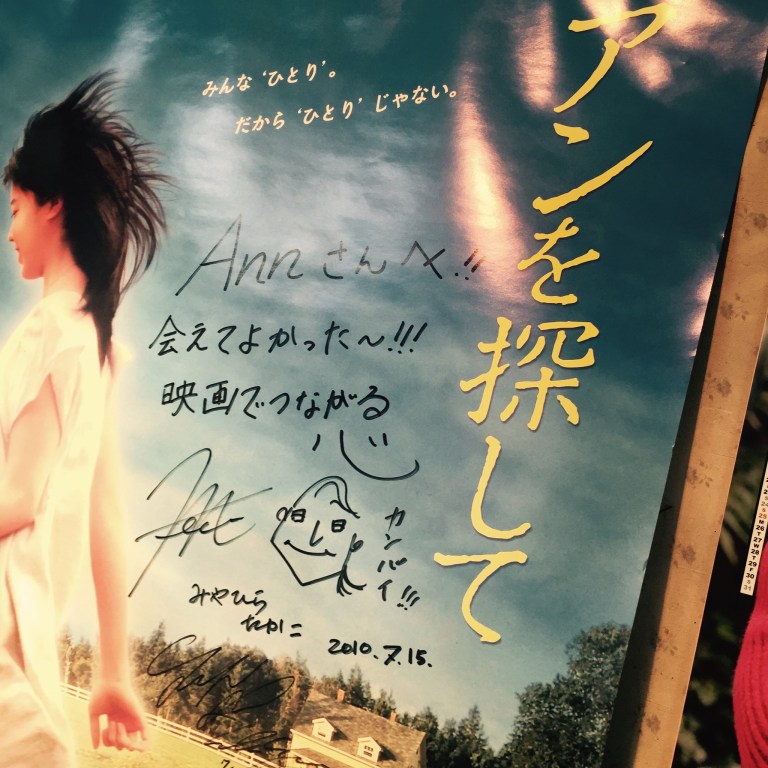 アンを探して
みんな‘ひとり’。
だから‘ひとり’じゃない。
Annさんへ!!
会えてよかった〜!!!
映画でつながる
心
カンパイ!!!
みやひら
たかこ
2010.7.15.